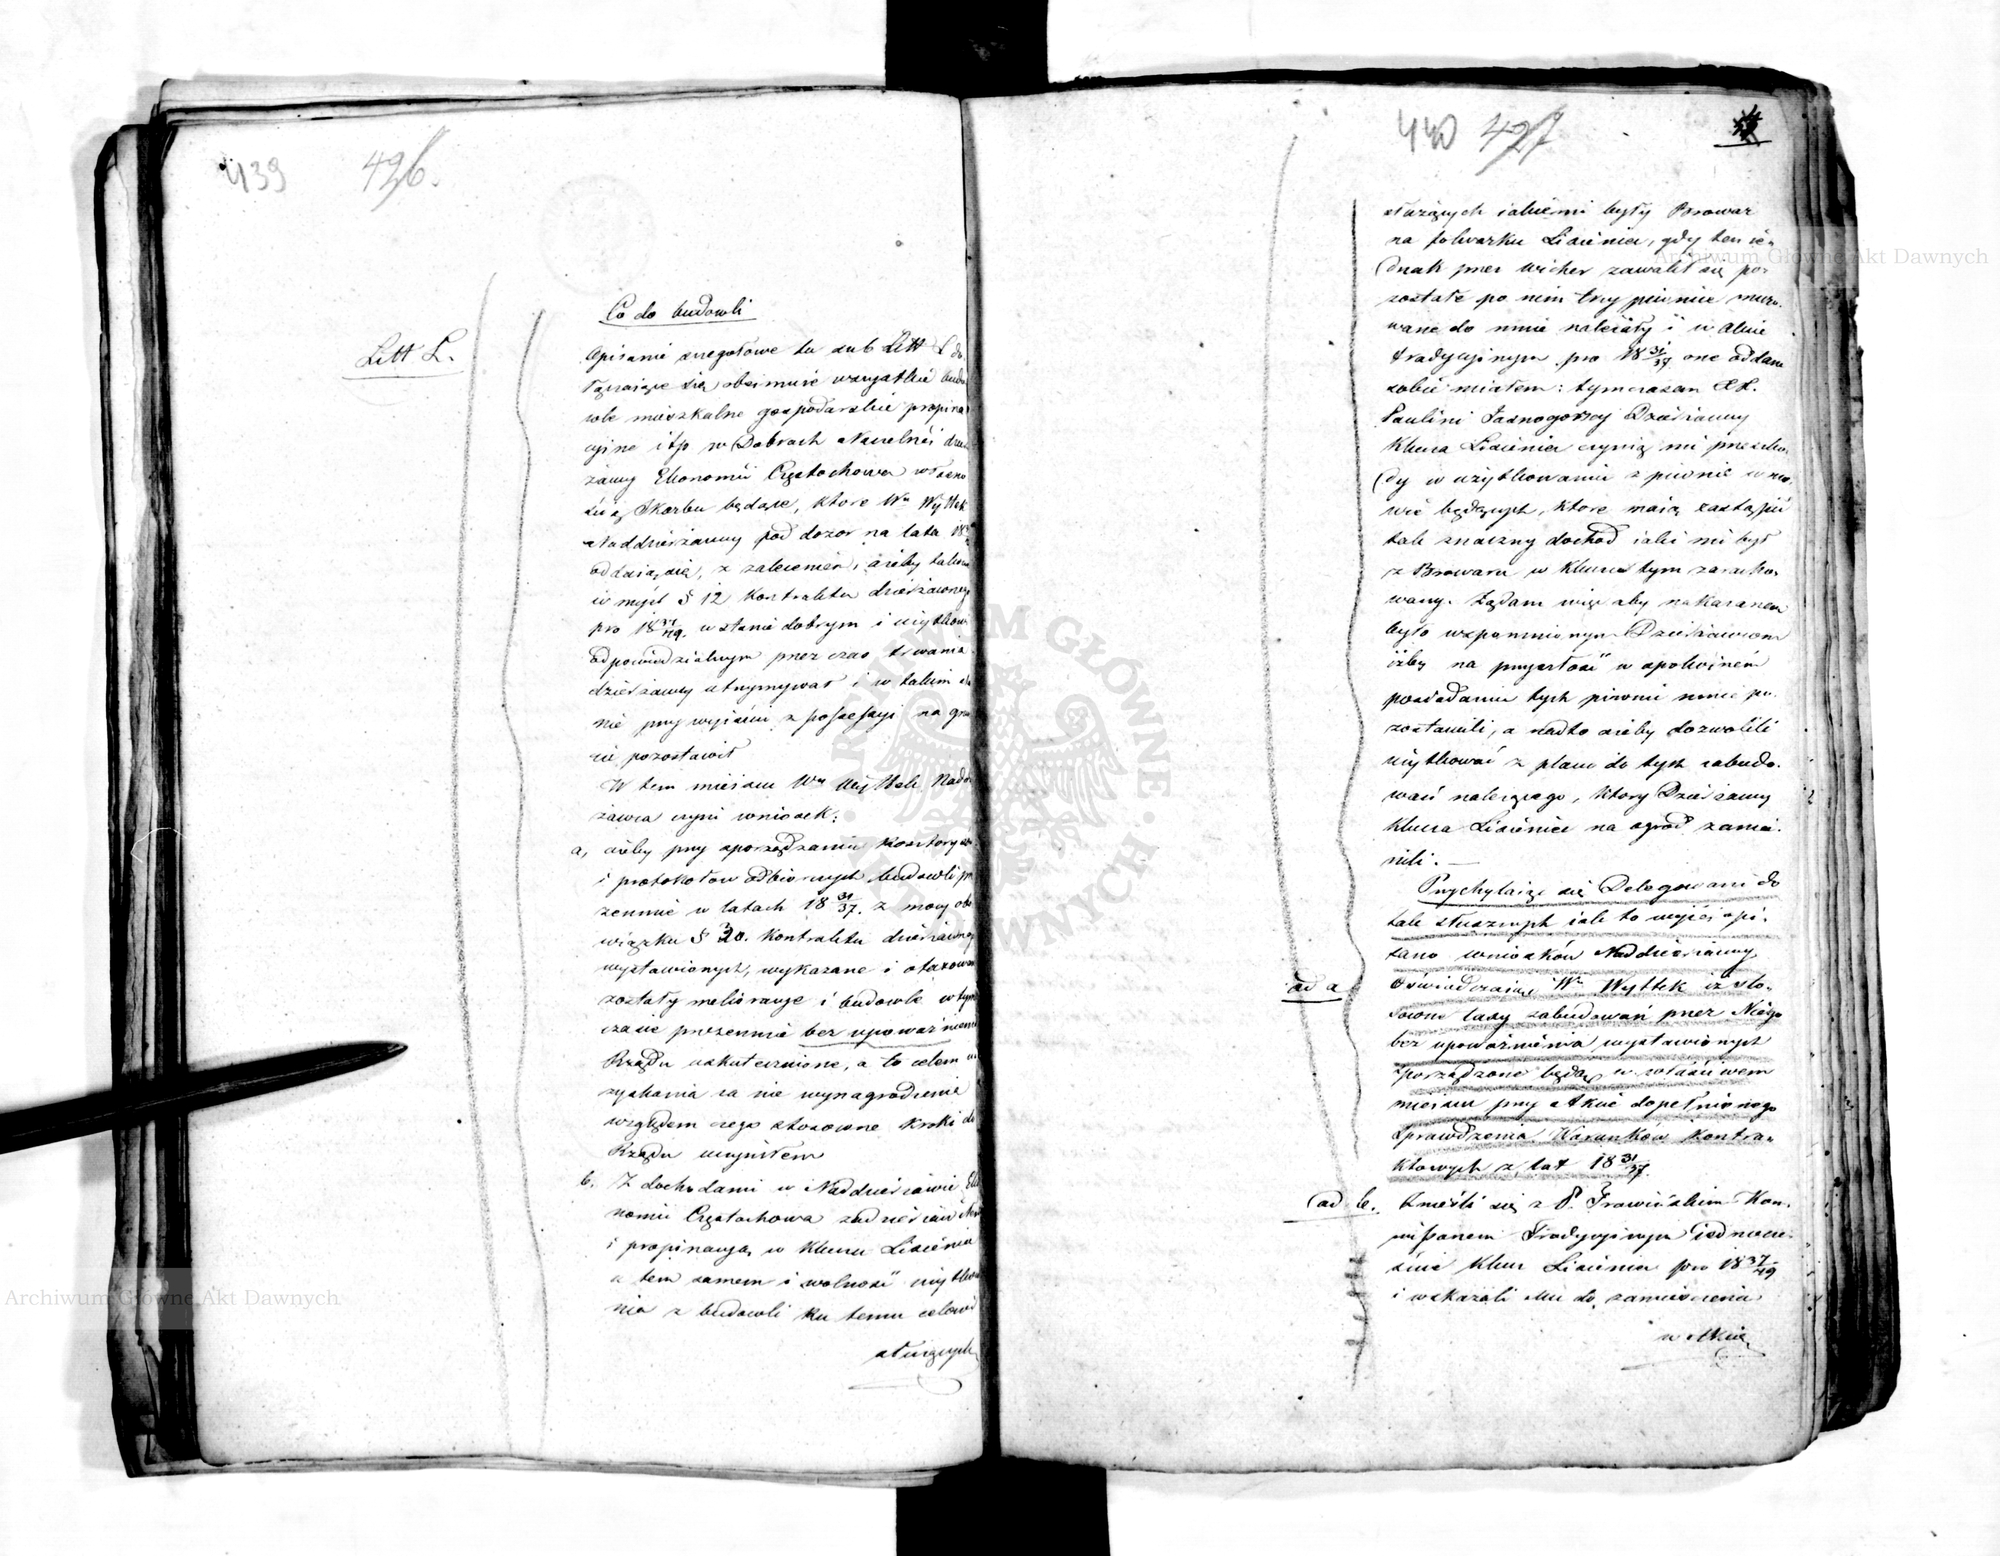 439 426.
Co do budowli
Litt L.
Opisanie szczegołowe tu sub Litt L do
łączaiące się obeimuie wszystkie budo
wle mieszkalne gospodarskie propina
cyine i t p w Dobrach Naczelnéi dzier
żawy Ekonomii Częstochowa własno
ścią Skarbu będące, które Wn Wyttek
Naddzierżawcy pod dozor na lata 18
oddaią się, z zaleceniem, ażeby takowe
w myśl § 12 Kontraktu dzierżawnego
pro 18 37/49. w stanie dobrym i użytkowi
odpowiedzialnym przez czas trwania
dzierżawy utrzymywał i w takim sta
nie przy wyiściu z possessyi na grun
cie pozostawił
W tem mieiscu Wn Wyttek Naddzier
żawca czyni wniosek:
a, ażeby przy sporządzaniu Kosztorysów
i protokołów odbiorczych budowli prze
zemnie w latach 18 31/37. z mocy obo
wiązku § 20. Kontraktu dzierżawnego
wystawionych, wykazane i otaxowane
zostały melioracye i budowle w tym
czasie przezemnie bez upoważnienia
Rządu uskutecznione, a to celem u
zyskania za nie wynagrodzenia
względem czego stosowne kroki do
Rządu uczyniłem
b. Z dochodami w Naddzierżawie Eko
nomii Częstochowa zadzierżawiłem
i propinacyą w Kluczu Lisiénia
a tem samem i wolność użytkowa
nia z budowli ku temu celowi
służących
440 427
służących iakiemi były Browar
na folwarku Lisiénia, gdy ten ie,,
dnak przez wicher zawalił się po,,
zostałe po nim trzy piwnice muro,
wane do mnie należały i w akcie
tradycyjnym pro 18 31/37 one oddane
sobie miałem: tymczasem XX.
Paulini Jasnogorscy Dzierżawcy
Klucza Lisiénia czynią mi przeszko,
dy w użytkowaniu z piwnic w mo,
wie będących, które maią zastąpić
tak znaczny dochód iaki mi był
z Browaru w Kluczu tym zaracho,
wany. Żądam więc aby nakazanem
było wspomnionym Dzierżawcom
iżby na przyszłość w spokoiném
posiadaniu tych piwnic mnie po,
zostawili, a nadto ażeby dozwolili
użytkować z placu do tych zabudo,
wań należącego, który Dzierżawcy
Klucza Lisiénice na ogród zamie,
nili. —
Przychylaiąc się Delegowani do
tak słusznych iak to wyżéi opi,
sano wniosków Naddzierżawcy
ad a
oświadczaią Wn Wyttek iż sto,
sowne taxy zabudowań przez Niego
bez upoważnienia wystawionych
sporządzone będą w właściwem
mieiscu przy Akcie dopełnionego
Sprawdzenia Warunków Kontra,,
ktowych z lat 18 31/37.
ad b. Znieśli się z P. Trawińskim Kom,
missarzem Tradycyjnym iednocze,
śnie Klucz Lisiénia pro 18 37/49
i wskazali Mu do zamieszczenia
w Akcie
Archiwum Główne Akt Dawnych
Archiwum Główne Akt Dawnych
ARCHIWUM GŁÓWNE AKT DAWNYCH